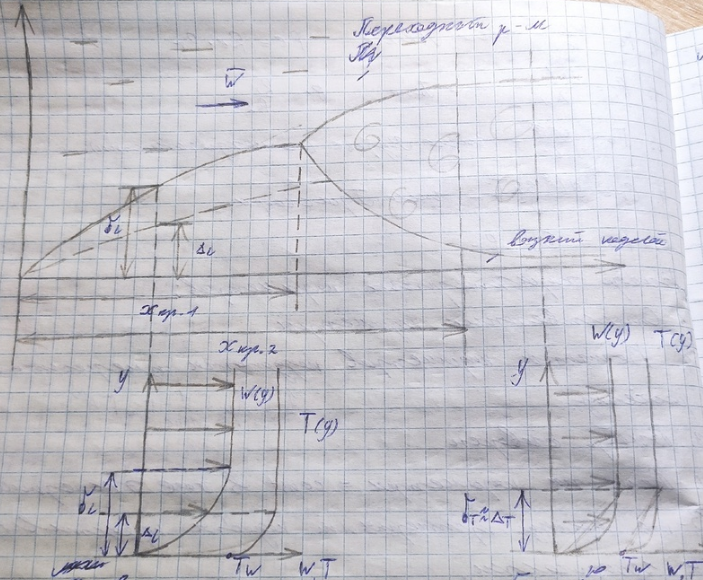 Переходный р-м
W̄
δL
ΔL
вязкий подслой
xкр.1
xкр.2
y
W(y)
T(y)
δL
ΔL
Tw
W T
y
W(y)
T(y)
δT≈ΔT
Tw
W T